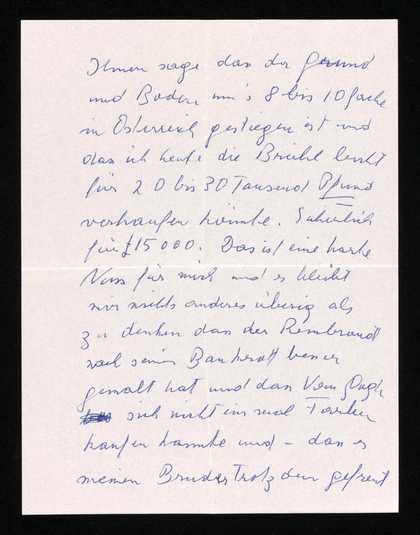 Ihnen sage das der Grund
und Boden um's 8 bis 10 fache
in Österreich gestiegen ist und
das ich heute die Brühl leicht
für 20 bis 30 Tausend Pfund
verkaufen könnte. Sicherlich
für £15000. Das ist eine harte
Nuss für mich und es bleibt
mir nichts anderes übrig als
zu denken das der Rembrandt
nach seinen Bankrott besser
gemalt hat und das Van Gogh
sich nicht einmal Farben
kaufen konnte und – das es
meinen Bruder Trotz dem gefreut